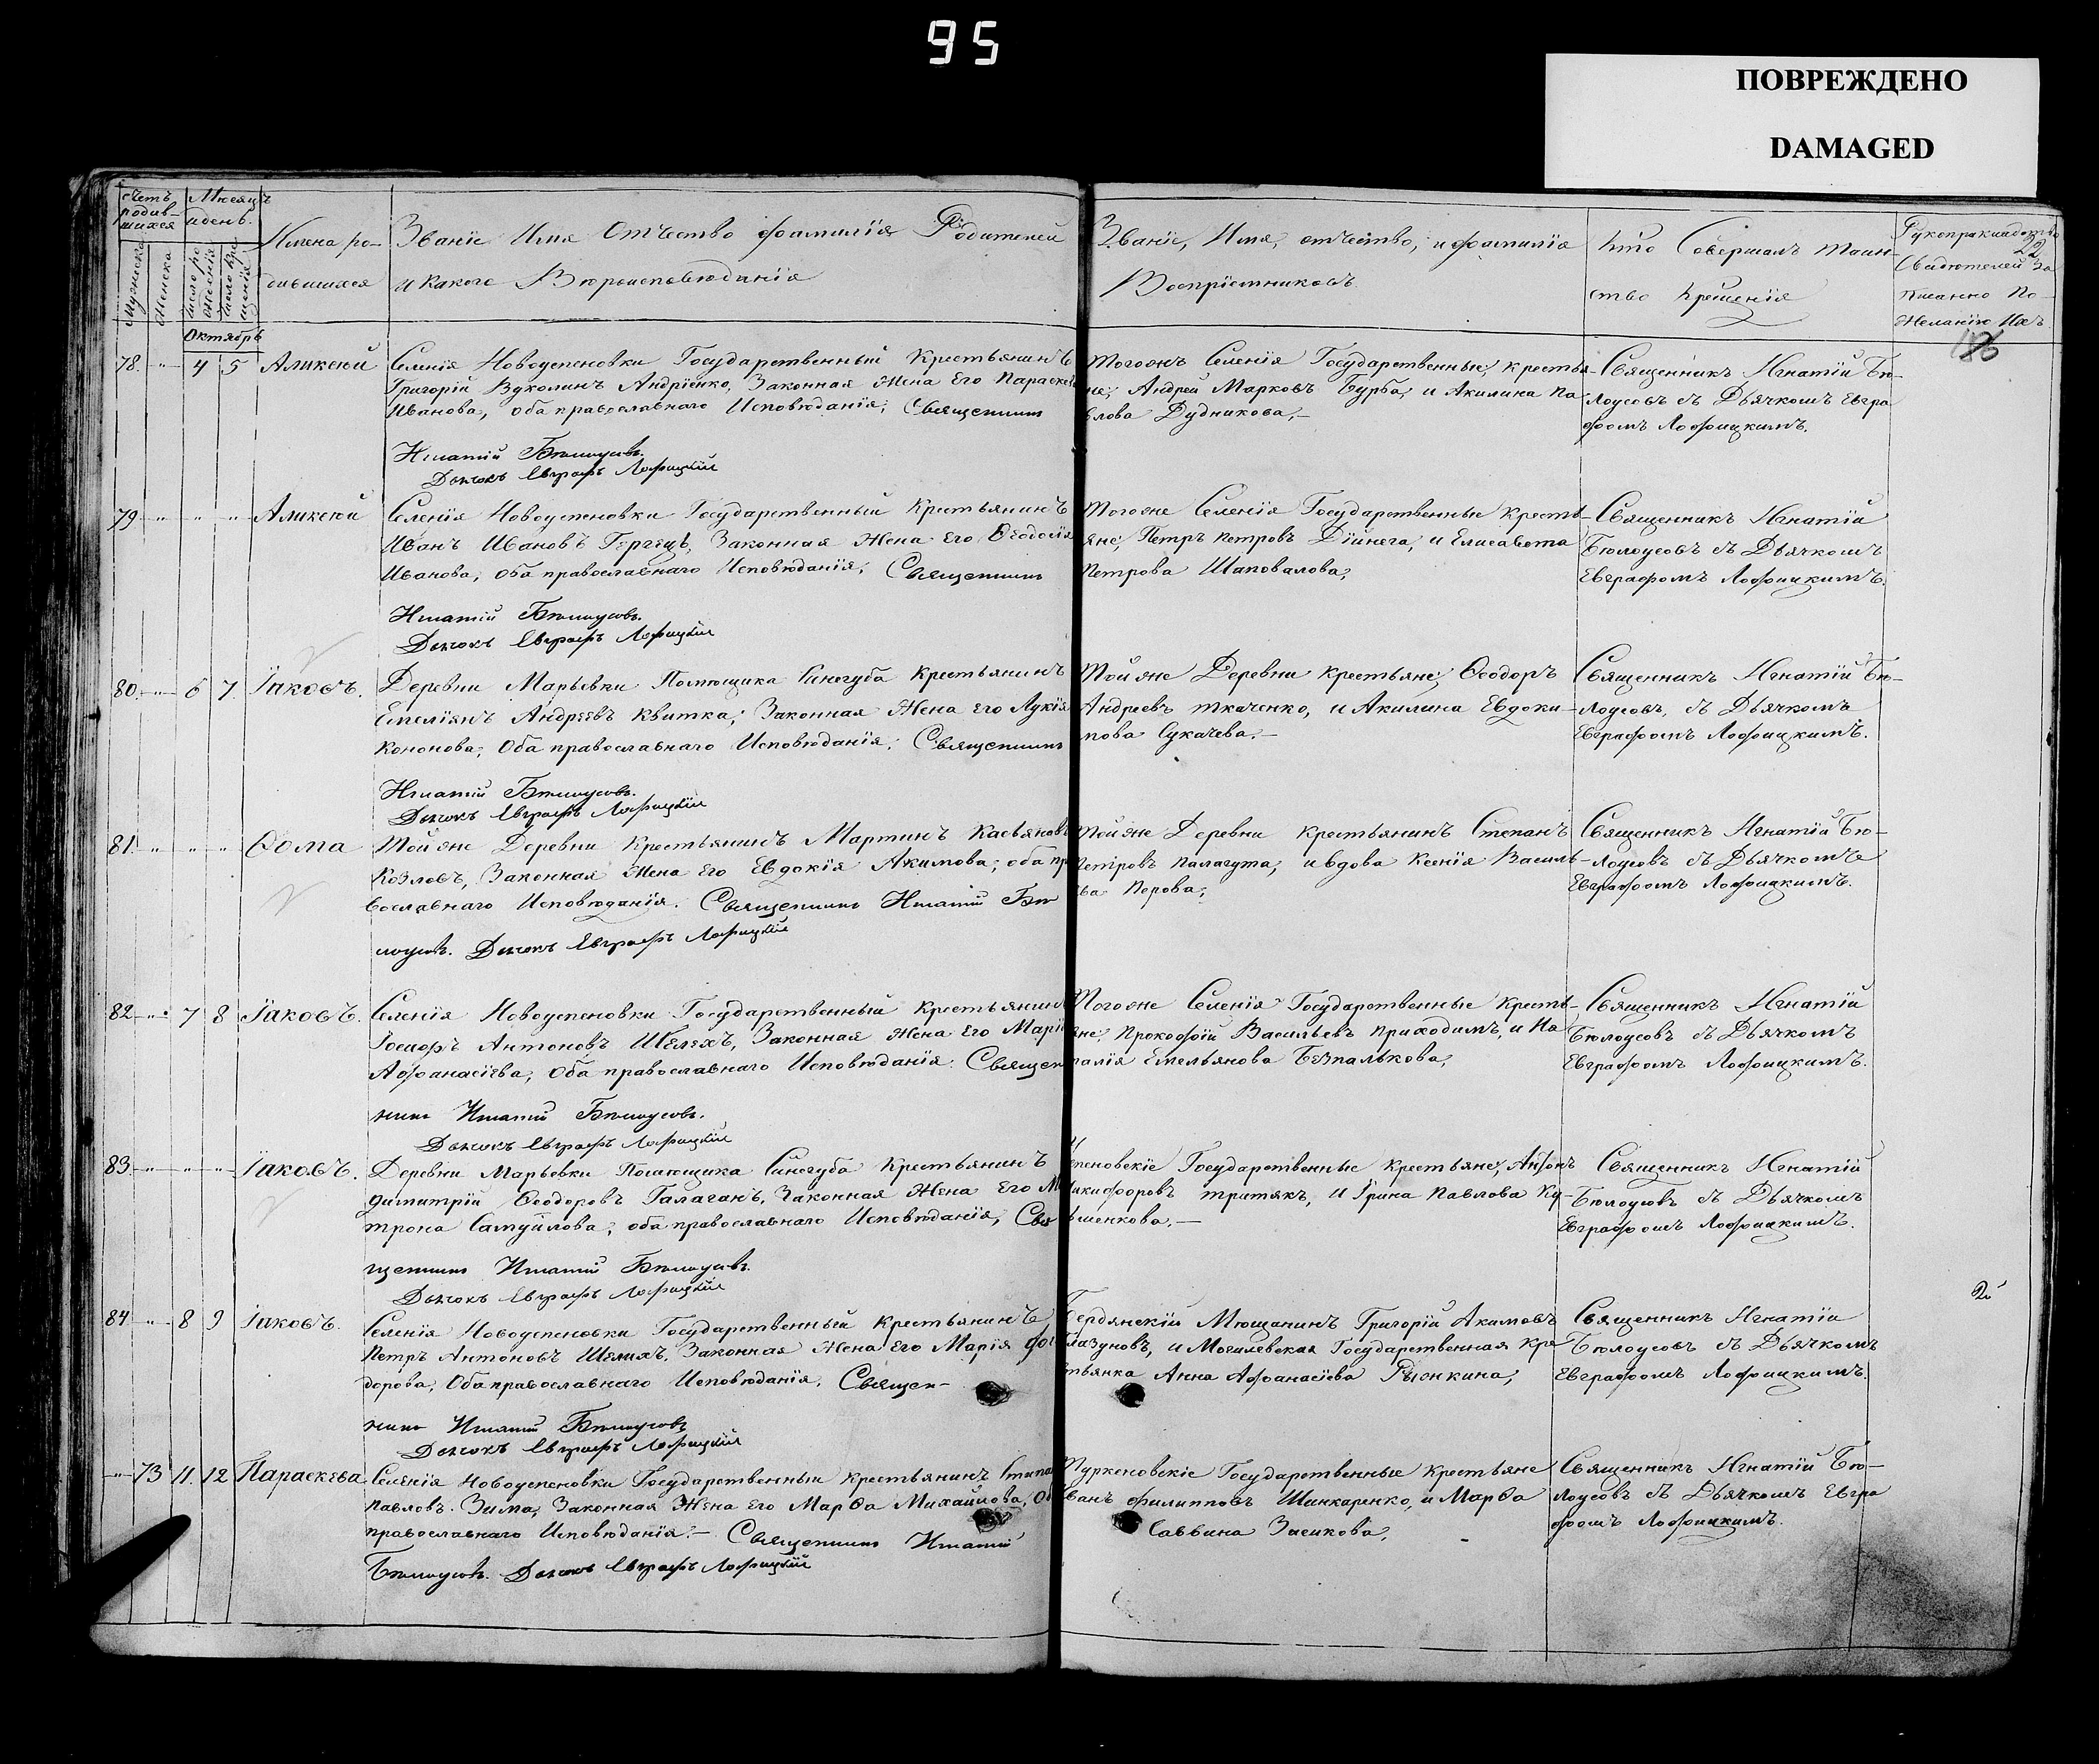 95
ПОВРЕЖДЕНО
DAMAGED
счетъ родив-шихся
Мѣсяцъ и день.
Имена ро-дившихся
Званіе Имя Отчество фамилія Родителей
и какого Вѣроисповѣданія
Званіе, Имя, отчество, и фамилія
Воспріемниковъ
Кто Совершалъ таин-
ство крещенія
Рукоприкладство
Свидѣтелей за
писанно по
желанію ихъ
Мужеска
Женска
число рожденія
число крещенія
Октябрь
78. " 4 5 Аликсей
Селенія Новоуспеновки Государственный Крестьянинъ
Григорій Вуколинъ Андріенко, Законная Жена Его Параске
Иванова, оба православнаго Исповѣданія; Священникъ
Игнатій Бѣлоусовъ.
Дьячокъ Евграфъ Лофицкій
тогожъ Селенія Государственные, крестья-
не; Андрей Марковъ Бурба, и Акилина Па
влова Дудникова,—
Священникъ Игнатій Бѣ-
лоусовъ съ Дьячкомъ Евгра
фомъ Лофицкимъ.
79 " " " Аликсей
Селенія Новоуспеновки Государственный Крестьянинъ
Иванъ Ивановъ Герчецъ, Законная Жена Его Ѳеодосія
Иванова, оба православнаго Исповѣданія; Священникъ
Игнатій Бѣлоусовъ.
Дьячокъ Евграфъ Лофицкій
тогоже Селенія Государственные Кресть-
яне; Петръ Петровъ Дійнега, и Елисавета
Петрова Шаповалова;
Священникъ Игнатій
Бѣлоусовъ съ Дьячкомъ
Евграфомъ Лофицкимъ.
80. " 6 7. Іаковъ.
Деревни Марьевки Помѣщика Синегуба Крестьянинъ
Емеліянъ Андреевъ Квитка; Законная Жена его Лукія
Кононова; Оба православнаго Исповѣданія; Священникъ
Игнатій Бѣлоусовъ.
Дьячокъ Евграфъ Лофицкій
Той же Деревни крестьяне; Ѳеодоръ
Андреевъ Ткаченко, и Акилина Евдоки-
мова Сукачева.—
Священникъ Игнатій Бѣ-
лоусовъ, съ Дьячкомъ
Евграфомъ Лофицкимъ.
81. " " " Ѳома
Той же Деревни Крестьянинъ Мартинъ Касьяновъ
Козловъ, Законная Жена Его Евдокія Акимова; оба пр
вославнаго Исповѣданія. Священникъ Игнатій Бѣ
лоусовъ. Дьячокъ Евграфъ Лофицкій
Той же Деревни крестьянинъ Степанъ
Петровъ Палагута; и вдова Ксенія Василь-
ева Перова;
Священникъ Игнатій Бѣ-
лоусовъ съ Дьячкомъ
Евграфомъ Лофицкимъ.
82 " 7 8 Іаковъ.
Селенія Новоуспеновки Государственный Крестьянинъ
Іосифъ Антоновъ Шелехъ, Законная Жена Его Марі
Афанасіева; Оба православнаго Исповѣданія Священ
никъ Игнатій Бѣлоусовъ.
Дьячокъ Евграфъ Лофицкій
Тогоже Селенія Государственные Кресть-
яне; Прокофій Васильевъ Приходимъ, и На
талія Емельянова Безпалькова;
Священникъ Игнатій
Бѣлоусовъ съ Дьячкомъ
Евграфомъ Лофицкимъ.
83. " " " Іаковъ.
Деревни Марьевки Помѣщика Синегуба Крестьянинъ
Димитрій Ѳеодоровъ Галаганъ, Законная Жена Его М
трона Самуйлова; оба православнаго Исповѣданія; Свя
щенникъ Игнатій Бѣлоусовъ.
Дьячокъ Евграфъ Лофицкій
пеновскіе Государственные крестьяне, Антонъ
Никифоровъ Тритякъ, и Ірина Павлова Ку-
шенкова.—
Священникъ Игнатій
Бѣлоусовъ съ Дьячкомъ
Евграфомъ Лофицкимъ.
84 " 8 9 Іаковъ.
Селенія Новоуспеновки Государственный Крестьянинъ,
Петръ Антоновъ Шелихъ, Законная Жена Его Марія Фе
дорова; Оба православнаго Исповѣданія. Священ-
никъ Игнатій Бѣлоусовъ
Дьячокъ Евграфъ Лофицкій
Бердянскій Мѣщанинъ Григорій Акимовъ
Глазуновъ, и Могилевская Государственная Кре
стьянка Анна Афанасіева Рыжкина;
Священникъ Игнатій
Бѣлоусовъ съ Дьячкомъ
Евграфомъ Лофицкимъ.
" 73 11. 12 Параскева
Селенія Новоуспеновки Государственный крестьянинъ Степа
Павловъ Зима; Законная Жена его Марѳа Михайлова, Об
православнаго Исповѣданія.— Священникъ Игнатій
Бѣлоусовъ. Дьячокъ Евграфъ Лофицкій
Туркеновскіе Государственные Крестьяне
Иванъ Филипповъ Шинкаренко, и Марѳа
Саввина Заикова;
Священникъ Игнатій Бѣ-
лоусовъ съ Дьячкомъ Евгра
фомъ Лофицкимъ.